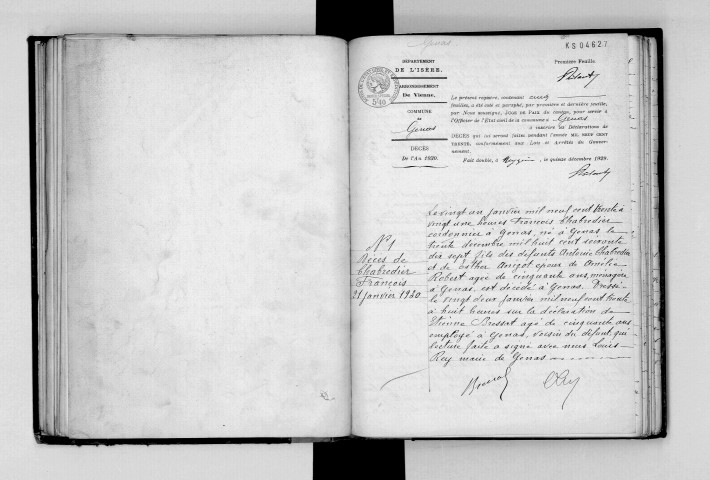 Genas
KS04627
DÉPARTEMENT
DE L'ISÈRE.
ARRONDISSEMENT
De Vienne.
COMMUNE
de
Genas
DÉCÈS
De l'An 1930.
5f40
Première Feuille.
Le présent registre, contenant cinq
feuilles, a été coté et paraphé, par première et dernière feuille,
par Nous soussigné, JUGE DE PAIX du canton, pour servir à
l'Officier de l'État civil de la commune de Genas
à inscrire les Déclarations de
DÉCÈS qui lui seront faites pendant l'année MIL NEUF CENT
TRENTE, conformément aux Lois et Arrêtés du Gouver-
nement.
Fait double, à Heyrieux, le quinze décembre 1929.
N° 1
Décès de
Chabredier
François
21 janvier 1930
Le vingt un janvier mil neuf cent trente à
vingt une heures François Chabredier
cordonnier à Genas, né à Genas, le
trente decembre mil huit cent soixante
dix sept fils des défunts Antoine Chabredier
et de Esther Angot époux de Amélie
Robert agée de cinquante ans, ménagère
à Genas, est décédé à Genas. Dressé
le vingt deux janvier mil neuf cent trente
à huit heures sur la déclaration de
Etienne Bressat agé de cinquante ans
employé à Genas, voisin du défunt, qui
lecture faite a signé avec nous Louis
Rey maire de Genas
Bressat
Rey